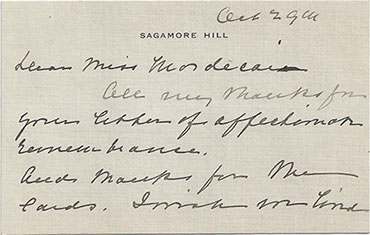 Oct 29th
SAGAMORE HILL
Dear Miss Mordecai
All my thanks for
your letter of affectionate
remembrance.
And thanks for the
cards. I wish we